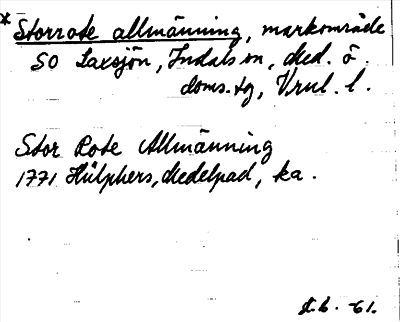 * Storrote allmänning, markområde
SO Laxsjön, Indals sn, Med. ö.
doms. tg, Vrnl. l.
Stor Rote Allmänning
1771 Hülphers, Medelpad, ka.
-61.